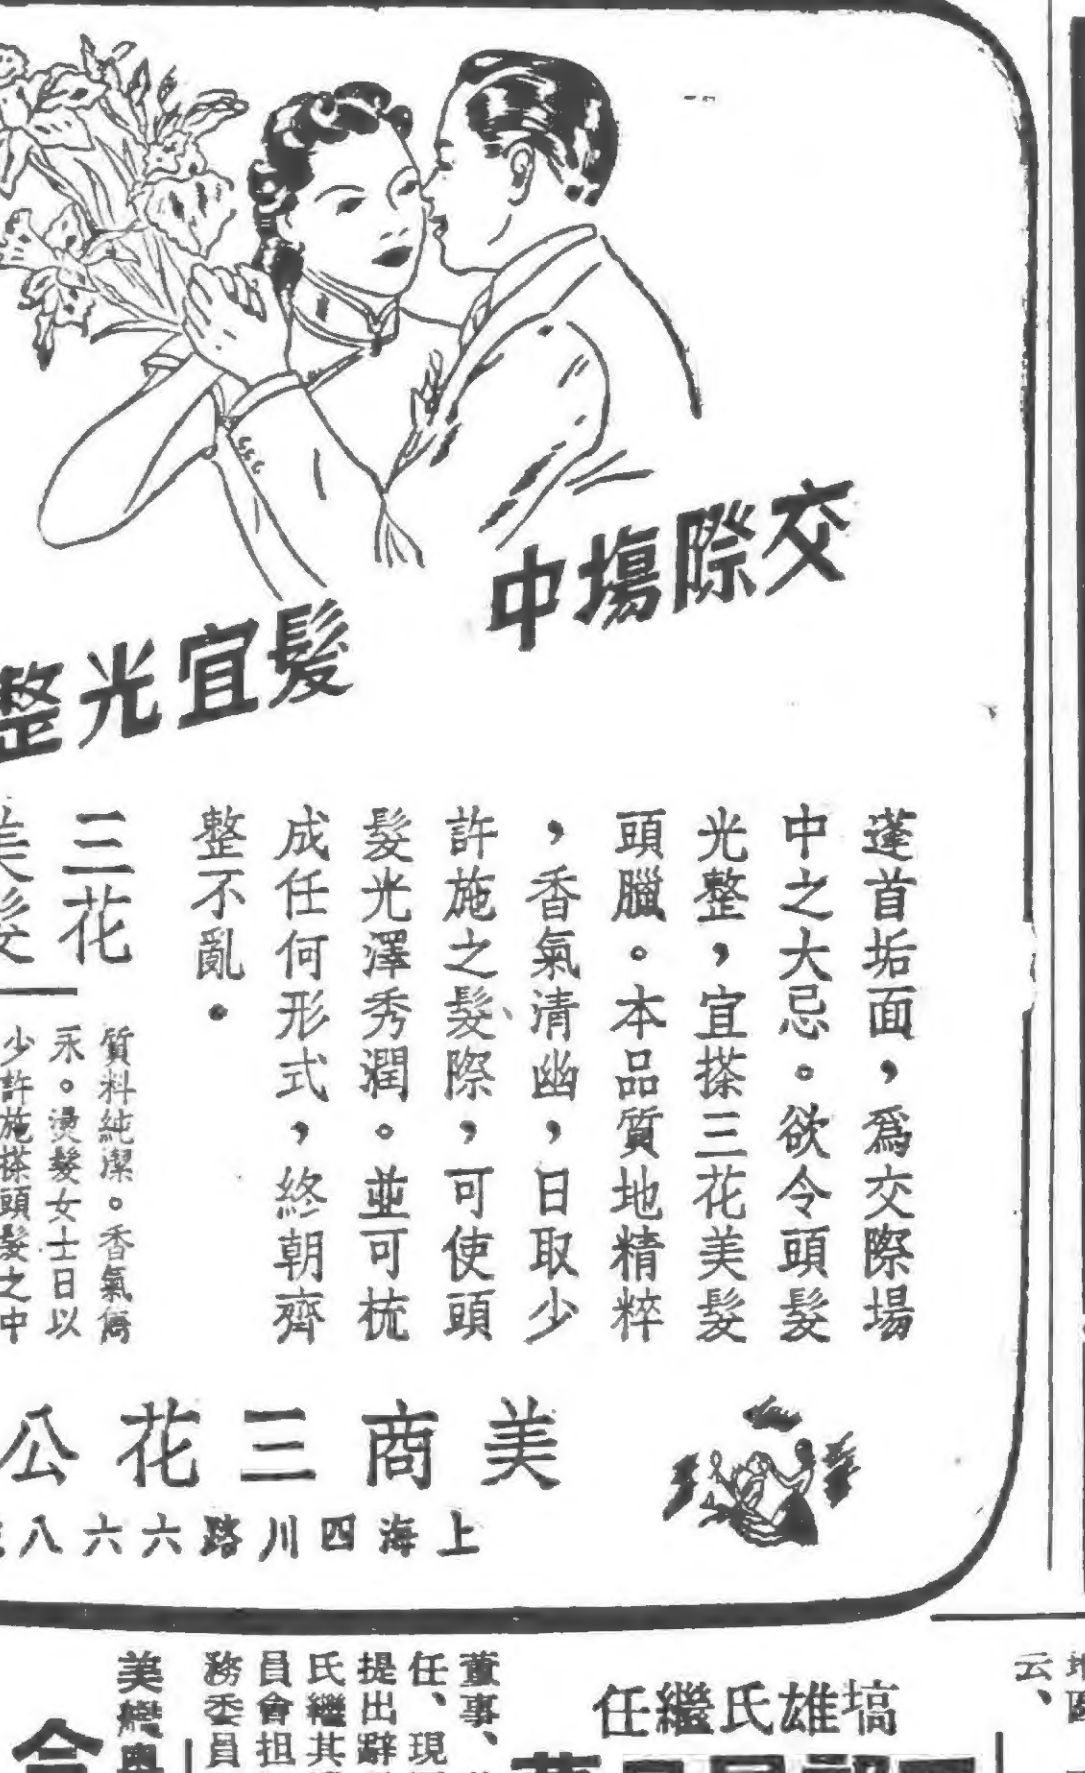 交際場中
髮宜光整
蓬首垢面，爲交際場
中之大忌。欲令頭髮
光整，宜搽三花美髮
頭臘。本品質地精粹
，香氣清幽，日取少
許施之髮際，可使頭
髮光澤秀潤。並可梳
成任何形式，終朝齊
整不亂。
三花
美髮
質料純潔。香氣雋
永。燙髮女士日以
少許施搽頭髮之中
美商三花公
上海四川路六六八
塙雄氏繼任
董事、
任、現
提出辭
氏繼其
員會担
務委員
云、